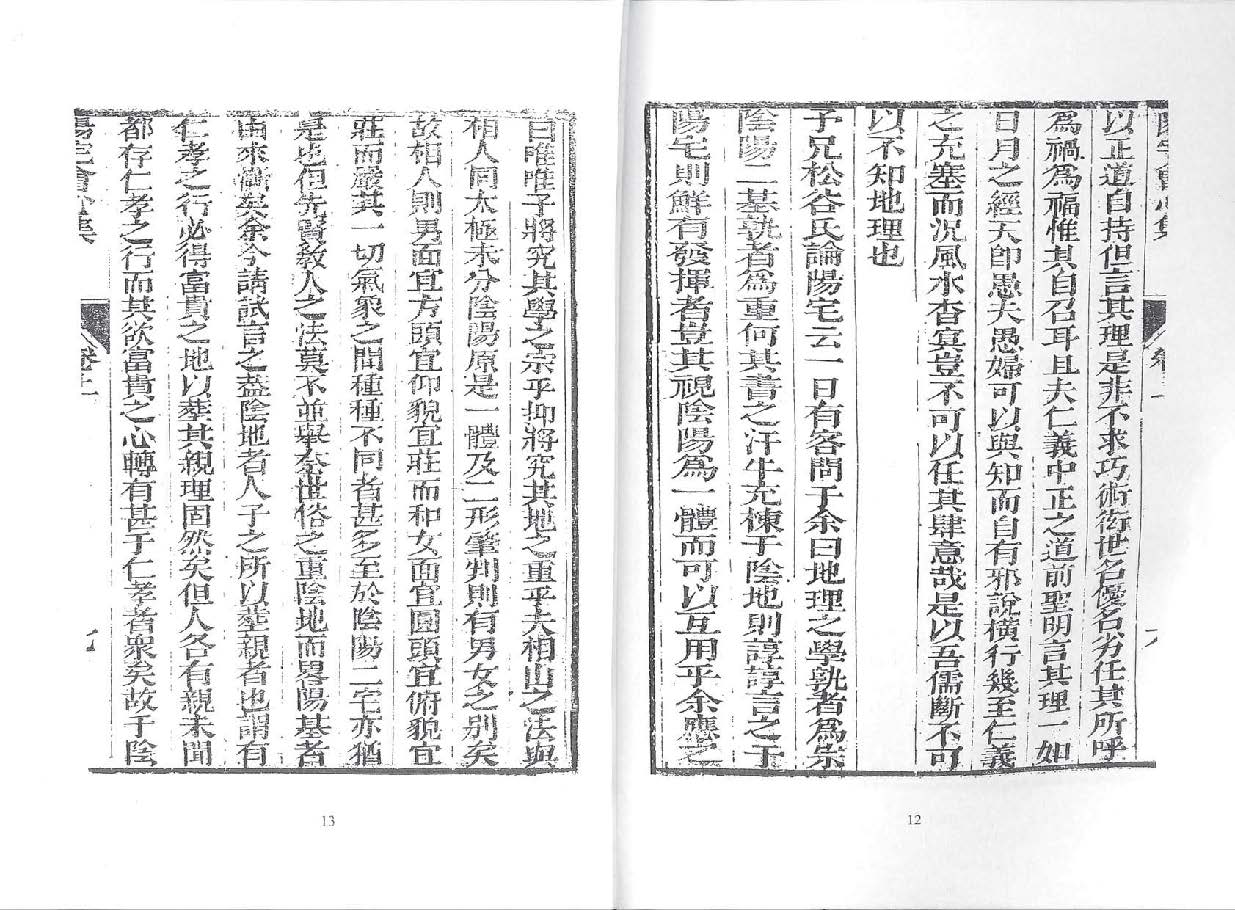 陽宅會心集 卷上 八
以正道自持但言其理是非不求巧術衒世名優名劣任其所呼
為禍為福惟其自召耳且夫仁義中正之道前聖明言其理一如
日月之經天卽愚夫愚婦可以與知而自有邪說橫行幾至仁義
之充塞而況風水杳冥豈不可以任其肆意哉是以吾儒斷不可
以不知地理也
予兄松谷氏論陽宅云一日有客問于余曰地理之學孰者為宗
陰陽二基孰者為重何其書之汗牛充棟于陰地則諄諄言之于
陽宅則鮮有發揮者豈其視陰陽為一體而可以互用乎余應之
12
曰唯唯子將究其學之宗乎抑將究其地之重乎夫相山之法與
相人同太極未分陰陽原是一體及二形肇判則有男女之別矣
故相人則男面宜方頭宜仰貌宜莊而和女面宜圓頭宜俯貌宜
莊而嚴其一切氣象之間種種不同者甚多至於陰陽二宅亦猶
是也但先賢教人之法莫不並舉奈世俗之重陰地而畧陽基者
由來舊矣余今請試言之葢陰地者人子之所以葬親者也謂有
仁孝之行必得富貴之地以葬其親理固然矣但人各有親未聞
都存仁孝之行而其欲富貴之心轉有甚于仁孝者衆矣故于陰
陽宅會心集 卷上 九
13